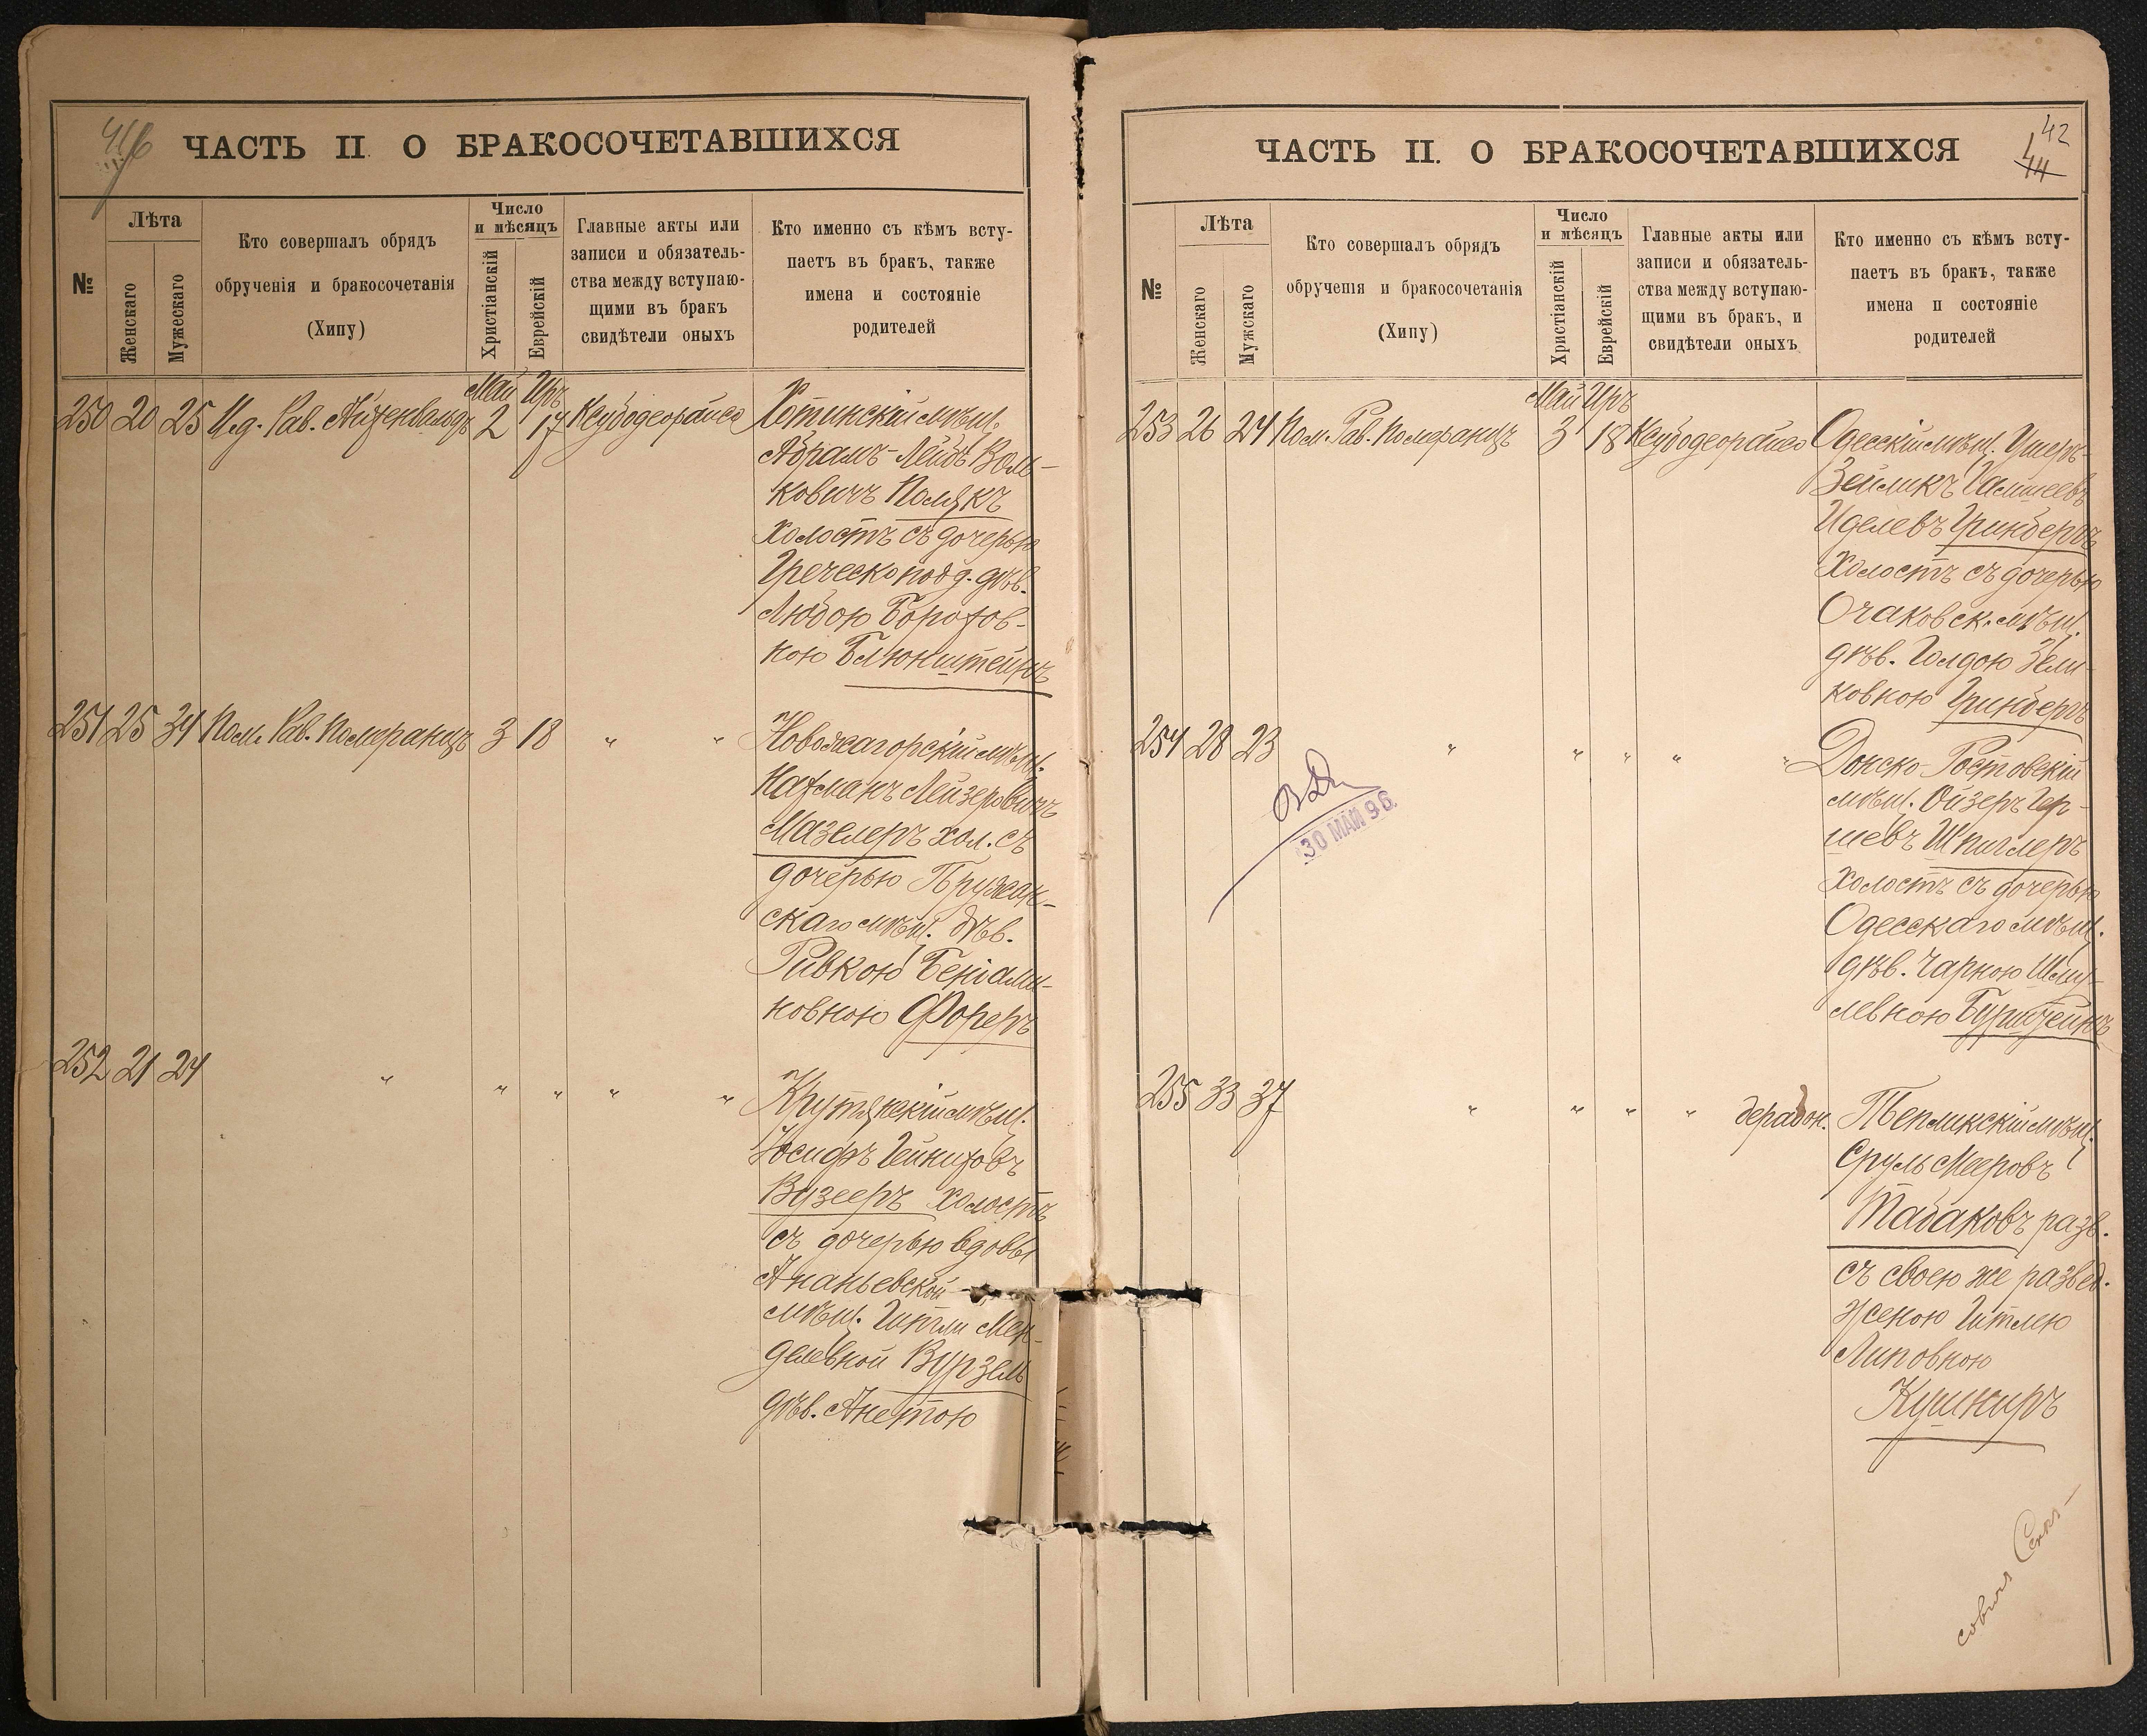 ЧАСТЬ II О БРАКОСОЧЕТАВШИХСЯ
№
Лѣта
Женскаго
Мужескаго
Кто совершалъ обрядъ
обрученія и бракосочетанія
(Хипу)
Число
и мѣсяцъ
Христіанскій
Еврейскій
Главные акты или
записи и обязатель-
ства между вступаю-
щими въ бракъ
свидѣтели оныхъ
Кто именно съ кѣмъ всту-
паетъ въ бракъ, также
имена и состояніе
родителей
Май Иръ
250 20 25 Ид. Рав. Айзенвальдъ 2 17 Ксубодеорайсо
Хотинскій мѣщ.
Абрамъ-Лейбъ Воль-
ковичъ Полякъ
холостъ съ дочерью
Греческопод. дѣв.
Любою Бороховной
кою Блюнштейнъ
251 25 34 Пом. Рав. Померанцъ 3 18 " "
Новожагорскій мѣщ.
Нахманъ Лейзеровичъ
Мазелеръ хол. съ
дочерью Пружан-
скаго мѣщ. дѣв.
Ривкою Беніами-
новною Фореръ
252 21 24 " " " " "
Крутянскій мѣщ.
Іосифъ
Вузееръ холостъ
съ дочерью вдовы
Ананьевской
мѣщ. Гитли Мен-
делевной Вурзель
дѣв. Анетою
ЧАСТЬ II. О БРАКОСОЧЕТАВШИХСЯ
42
44
№
Лѣта
Женскаго
Мужскаго
Кто совершалъ обрядъ
обрученія и бракосочетанія
(Хипу)
Число
и мѣсяцъ
Христіанскій
Еврейскій
Главные акты или
записи и обязатель-
ства между вступаю-
щими въ бракъ, и
свидѣтели оныхъ
Кто именно съ кѣмъ всту-
паетъ въ бракъ, также
имена и состояніе
родителей
Май Иръ
253 26 24 Пом. Рав. Померанцъ 3 18 Ксубодеорайсо
Одесскій мѣщ. Ушеръ-
Зейликъ
Иделевъ Гринбергъ
холостъ съ дочерью
Очаковск. мѣщ.
дѣв. Голдою Зели-
ковною Гринбергъ
254 28 23 " " " " "
Донско-Ростовскій
мѣщ. Ойзеръ Гер-
шевъ Шпиглеръ
холостъ съ дочерью
Одесскаго мѣщ.
дѣв. Чарною Шму-
левною Бурштейнъ
30 МАЙ 96
255 33 37 " " " " дерабон.
Тепликскій мѣщ.
Сруль Мееровъ
Табаковъ разв.
съ своею же развед.
женою Гитлею
Липовною
Кушниръ